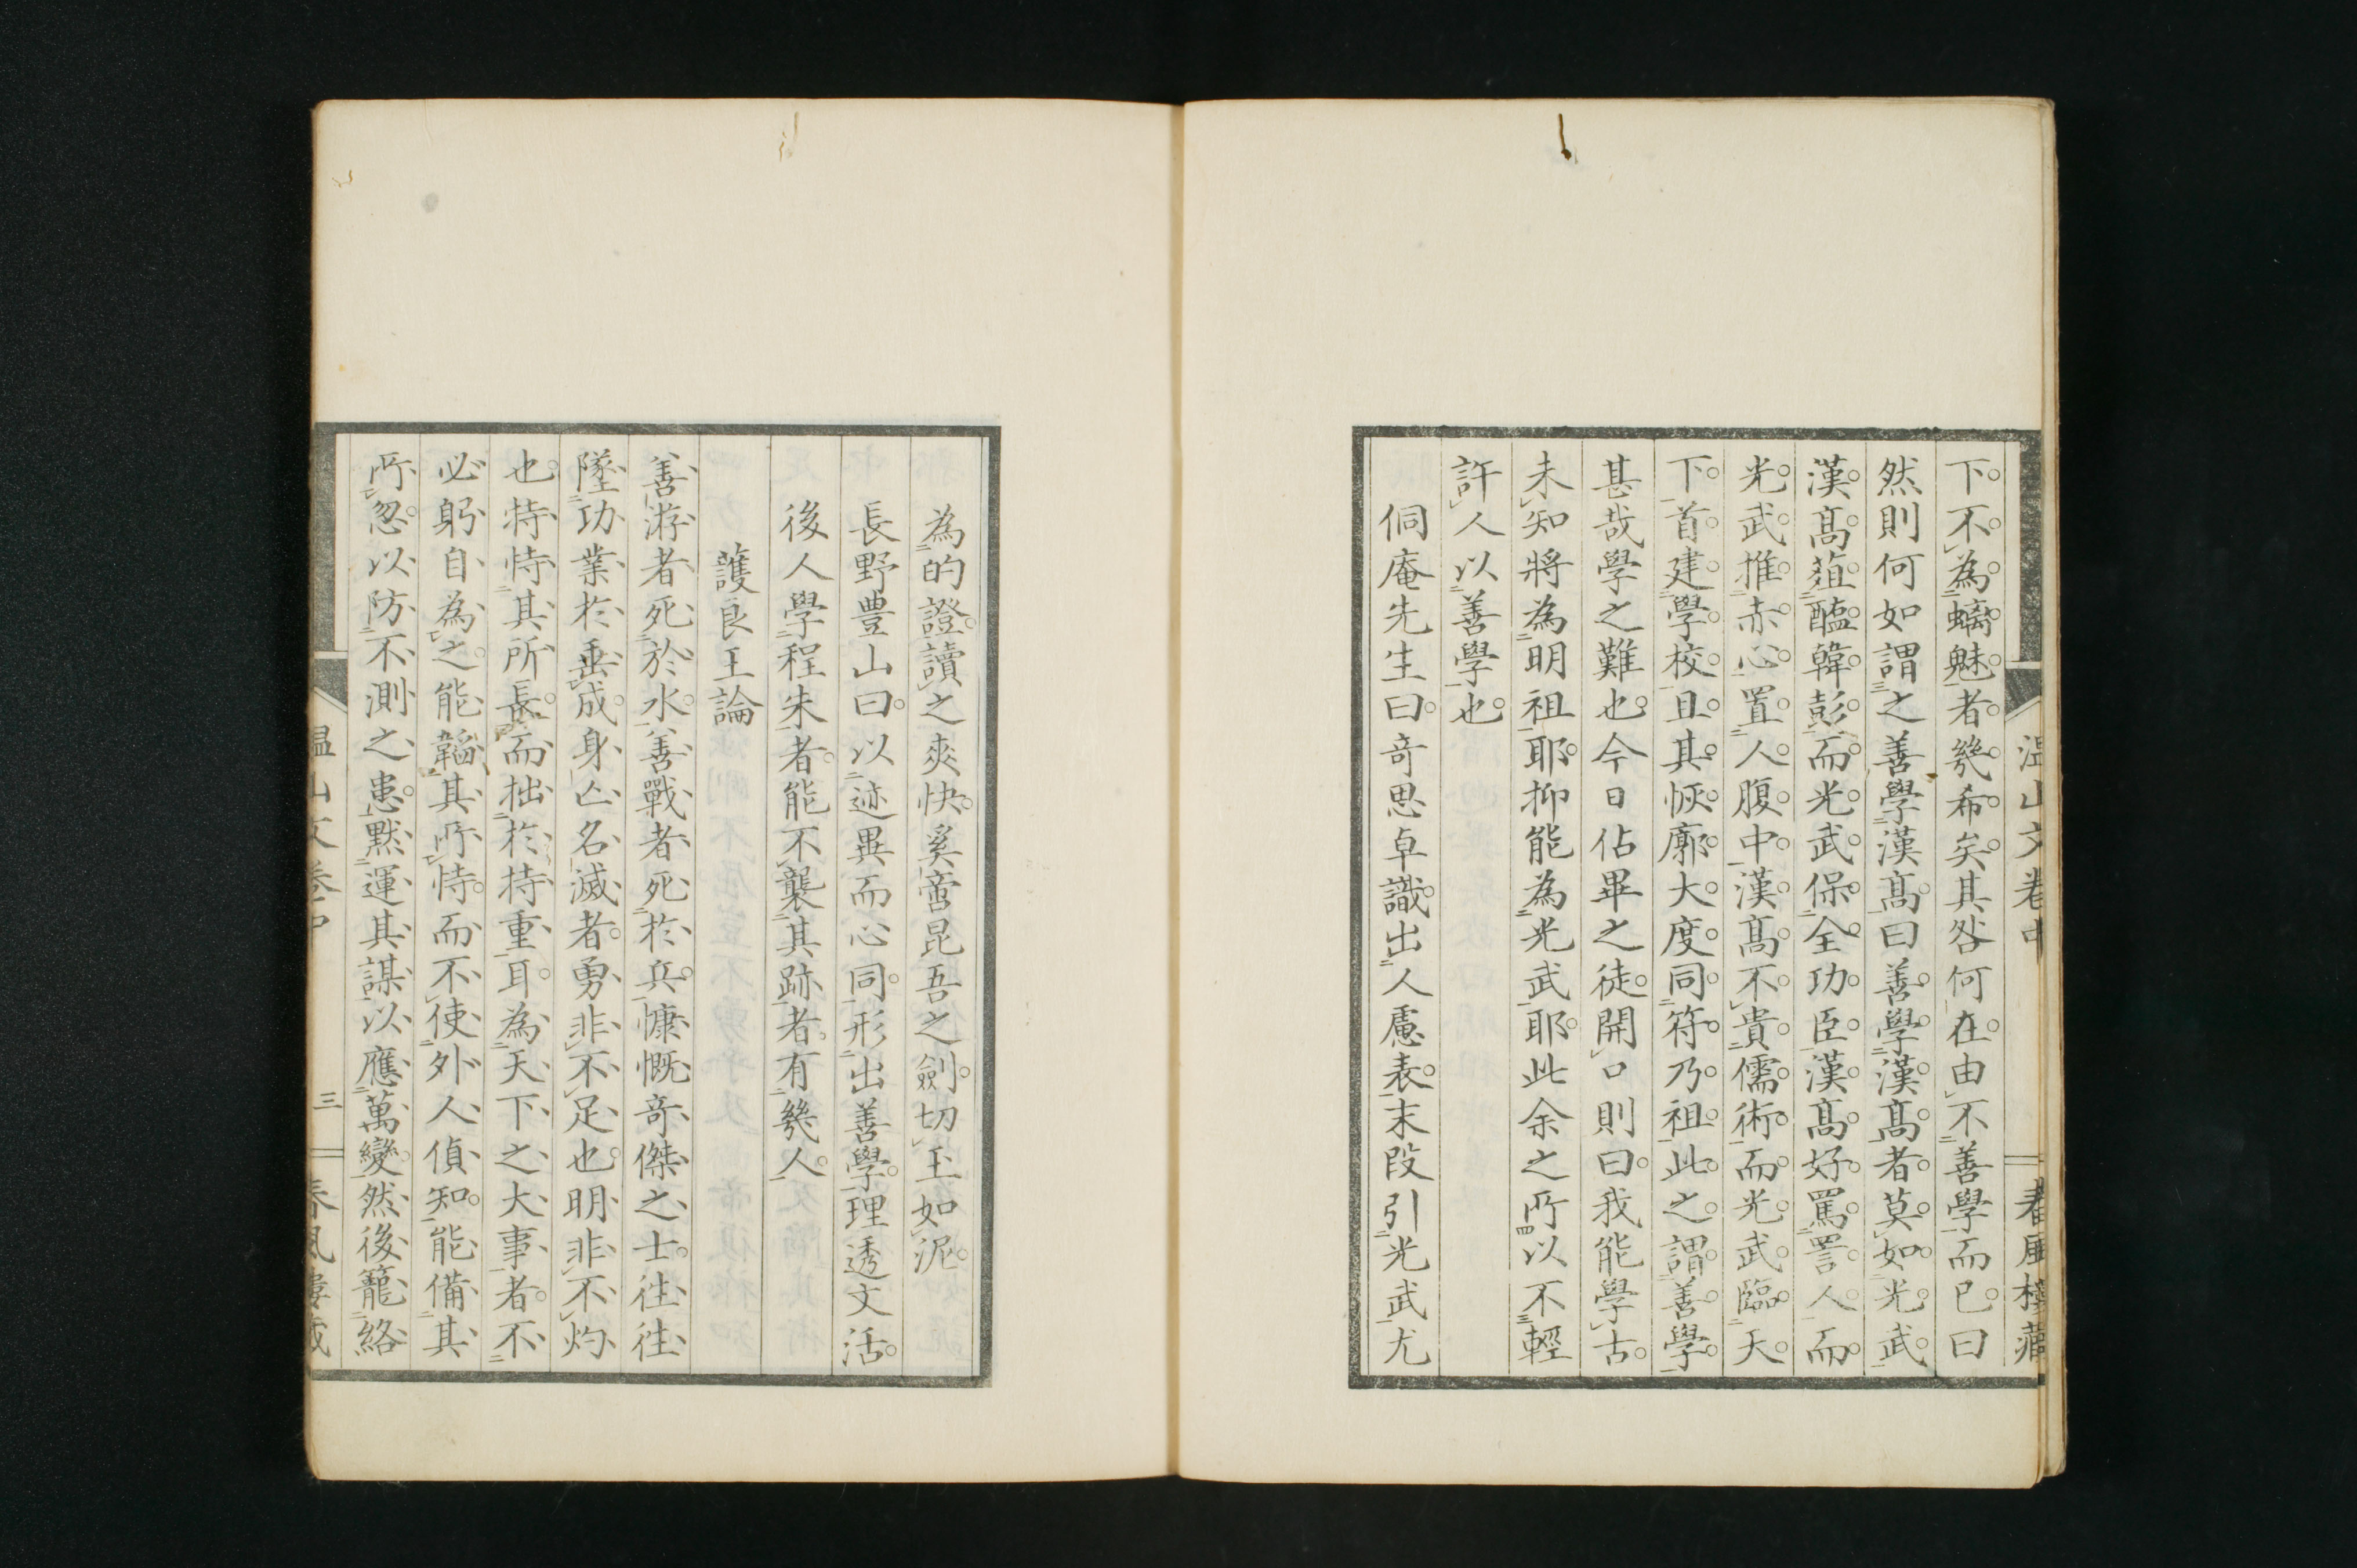 溫山文卷中 春風樓藏
下。不為螭魅者。幾希矣。其咎何在。由不善學而已。曰
然則何如謂之善學漢高。曰善學漢高者。莫如光武。
漢高葅醢韓彭。而光武保全功臣。漢高好罵詈人。而
光武推赤心置人腹中。漢高不貴儒術。而光武臨天
下。首建學校。且其恢廓大度。同符乃祖。此之謂善學。
甚哉學之難也。今日佔畢之徒。開口則曰。我能學古。
未知將為明祖耶。抑能為光武耶。此余之所以不輕
許人以善學也。
侗庵先生曰。奇思卓識。出人慮表。末段引光武尤
為的證。讀之爽快。奚啻昆吾之劍。切玉如泥。
長野豊山曰。以迹異而心同。形出善學。理透文活。
後人學程朱者。能不襲其跡者。有幾人。
護良王論
善游者死於水。善戰者死於兵。慷慨奇傑之士。往往
墜功業於垂成。身亡名滅者。勇非不足也。明非不灼
也。特恃其所長。而拙於持重耳。為天下之大事者。不
必躬自為之。能韜其所恃。而不使外人偵知。能備其
所忽。以防不測之患。默運其謀。以應萬變。然後籠絡
溫山文卷中 三 春風樓藏